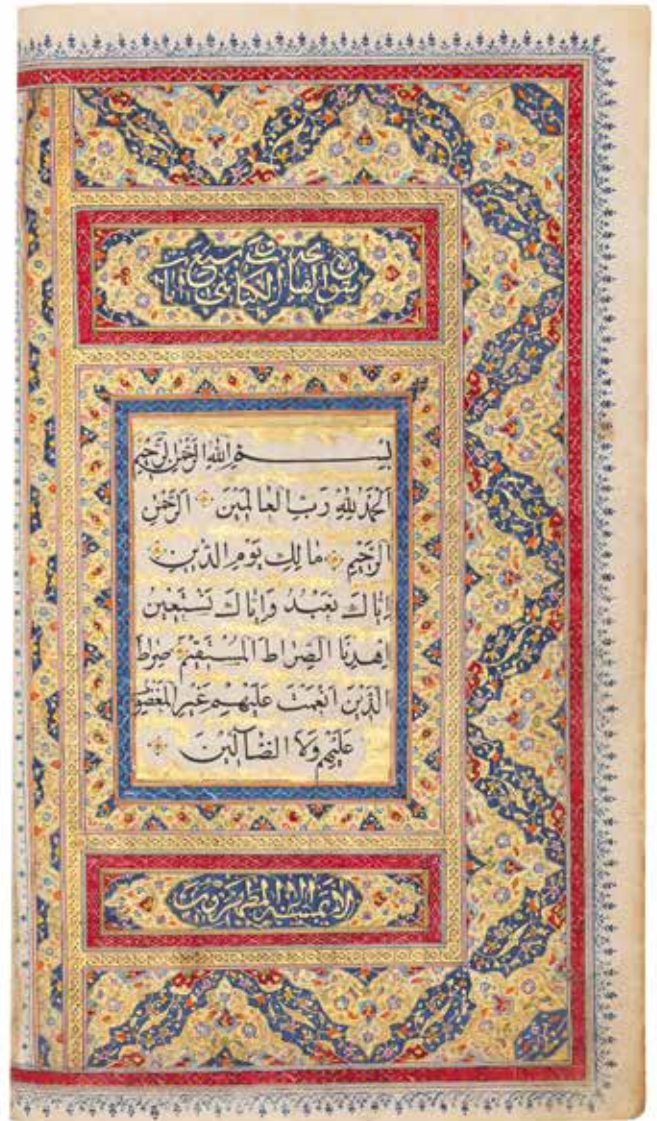 سورة الفاتحة الكتاب سبع آيات
بِسْمِ اللهِ الرَّحْمٰنِ الرَّحِيْمِ
اَلْحَمْدُ لِلّٰهِ رَبِّ الْعالَمِيْنَ اَلرَّحْمٰنِ
الرَّحِيْمِ مالِكِ يَوْمِ الدِّيْنِ
اِيّاكَ نَعْبُدُ وَاِيّاكَ نَسْتَعِيْنُ
اِهْدِنَا الصِّراطَ الْمُسْتَقِيْمَ صِراطَ
الَّذِيْنَ اَنْعَمْتَ عَلَيْهِمْ غَيْرِ الْمَغْضُوْبِ
عَلَيْهِمْ وَلَا الضّآلِّيْنَ
لا يمسه الا المطهرون